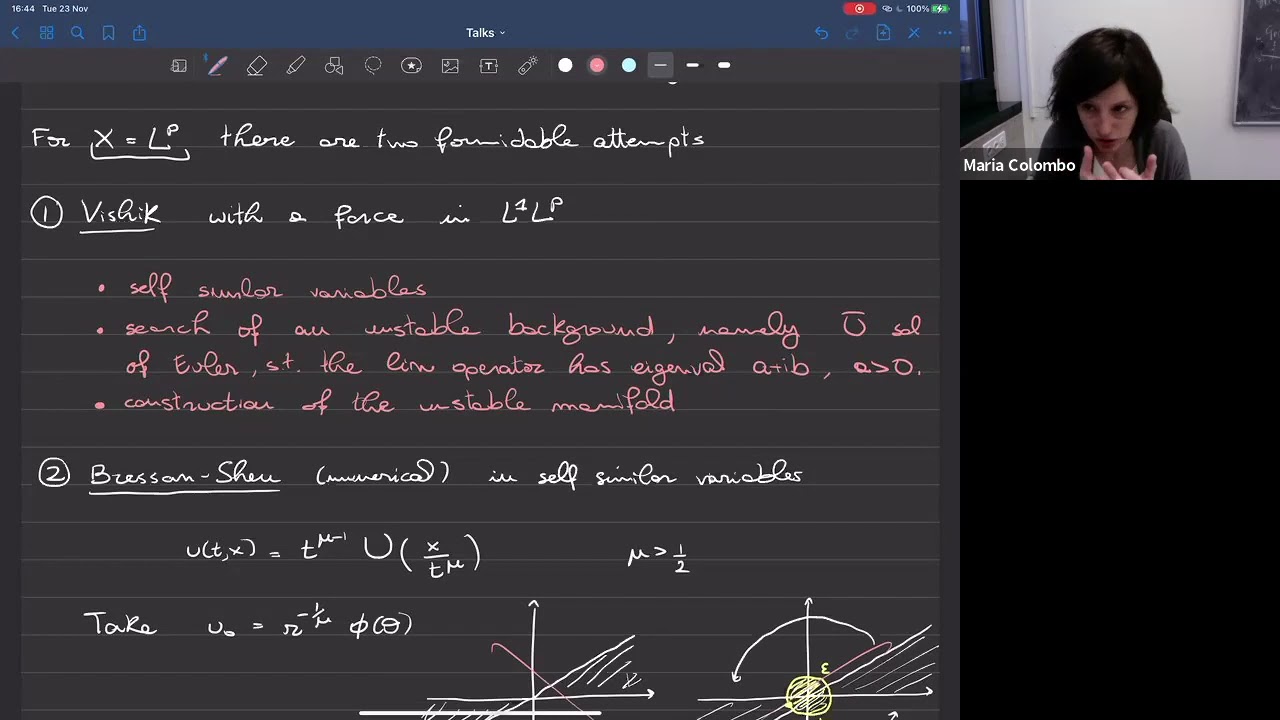 16:44 Tue 23 Nov
100%
Talks
Maria Colombo
For X = L^p there are two formidable attempts
① Vishik with a force in L^1 L^p
• self similar variables
• search of an unstable background, namely Ū sol
of Euler, s.t. the lin operator has eigenval a+ib, a>0.
• construction of the unstable manifold
② Bressan-Shen (numerical) in self similar variables
u(t,x) = t^{μ-1} U(x/t^μ) μ > 1/2
Take u₀ = r^{-1/μ} φ(θ)
ε